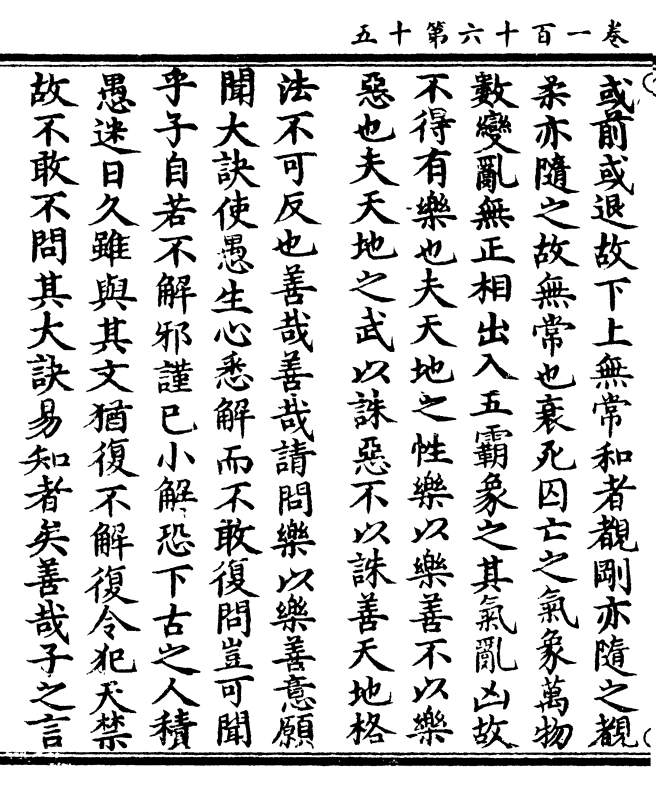 卷一百十六第十五
或前或退故下上無常和者覩剛亦隨之覩
柔亦隨之故無常也衰死囚亡之氣象萬物
數變亂無正相出入五霸象之其氣亂凶故
不得有樂也夫天地之性樂以樂善不以樂
惡也夫天地之武以誅惡不以誅善天地格
法不可反也善哉善哉請問樂以樂善意願
聞大訣使愚生心悉解而不敢復問豈可聞
乎子自若不解邪謹已小解恐下古之人積
愚迷日久雖與其文猶復不解復令犯天禁
故不敢不問其大訣易知者矣善哉子之言